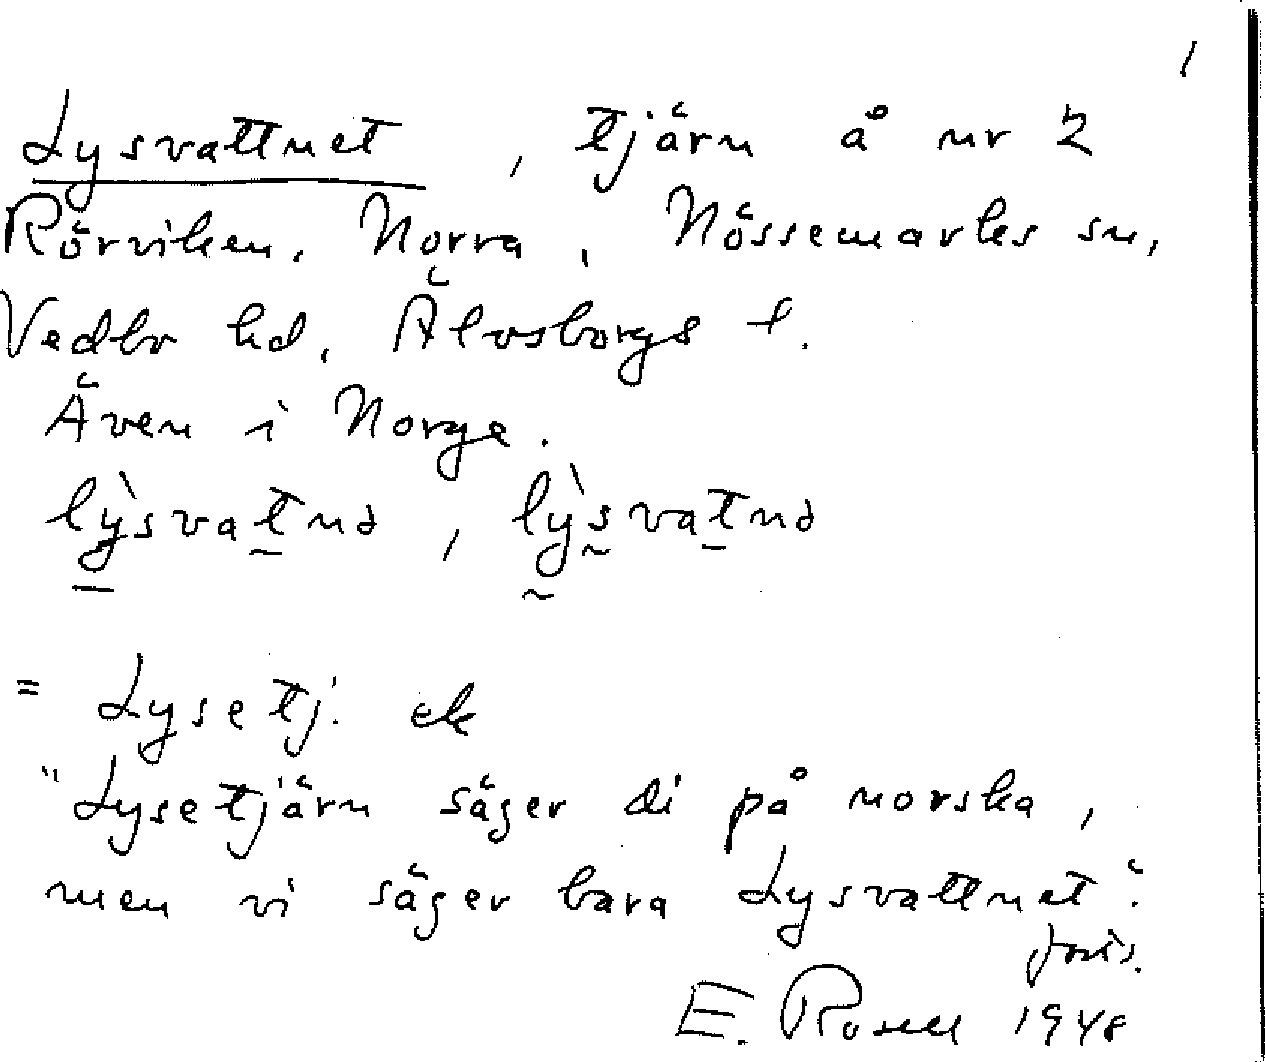 1
Lysvattnet, tjärn å nr 2
Rörviken, Norra, Nössemarks sn,
Vedbo hd, Älvsborgs l.
Även i Norge.
lỳsvatnə, lỳsvatnə
= Lysetj. ek
"Lysetjärn säger di på norska,
men vi säger bara Lysvattnet".
E. Rosell 1948